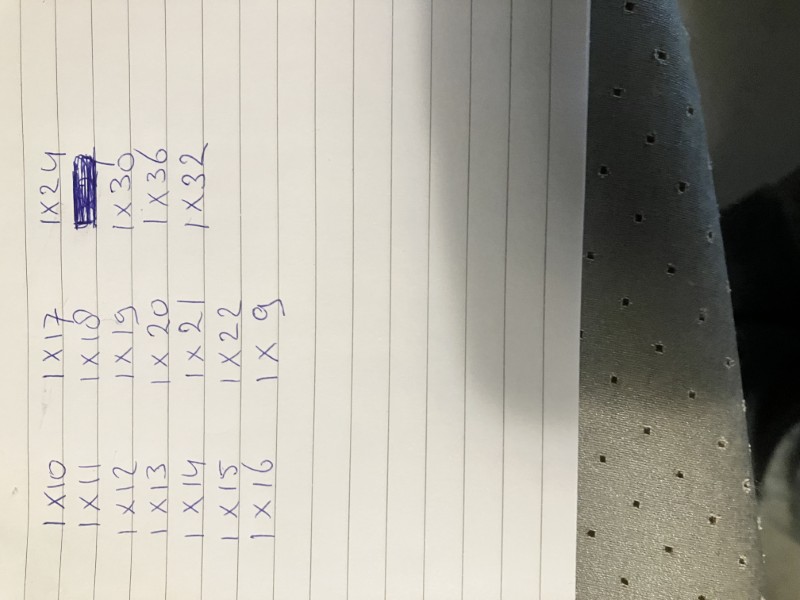 1x10 1x17 1x24
1x11 1x18
1x12 1x19 1x30
1x13 1x20 1x36
1x14 1x21 1x32
1x15 1x22
1x16 1x9